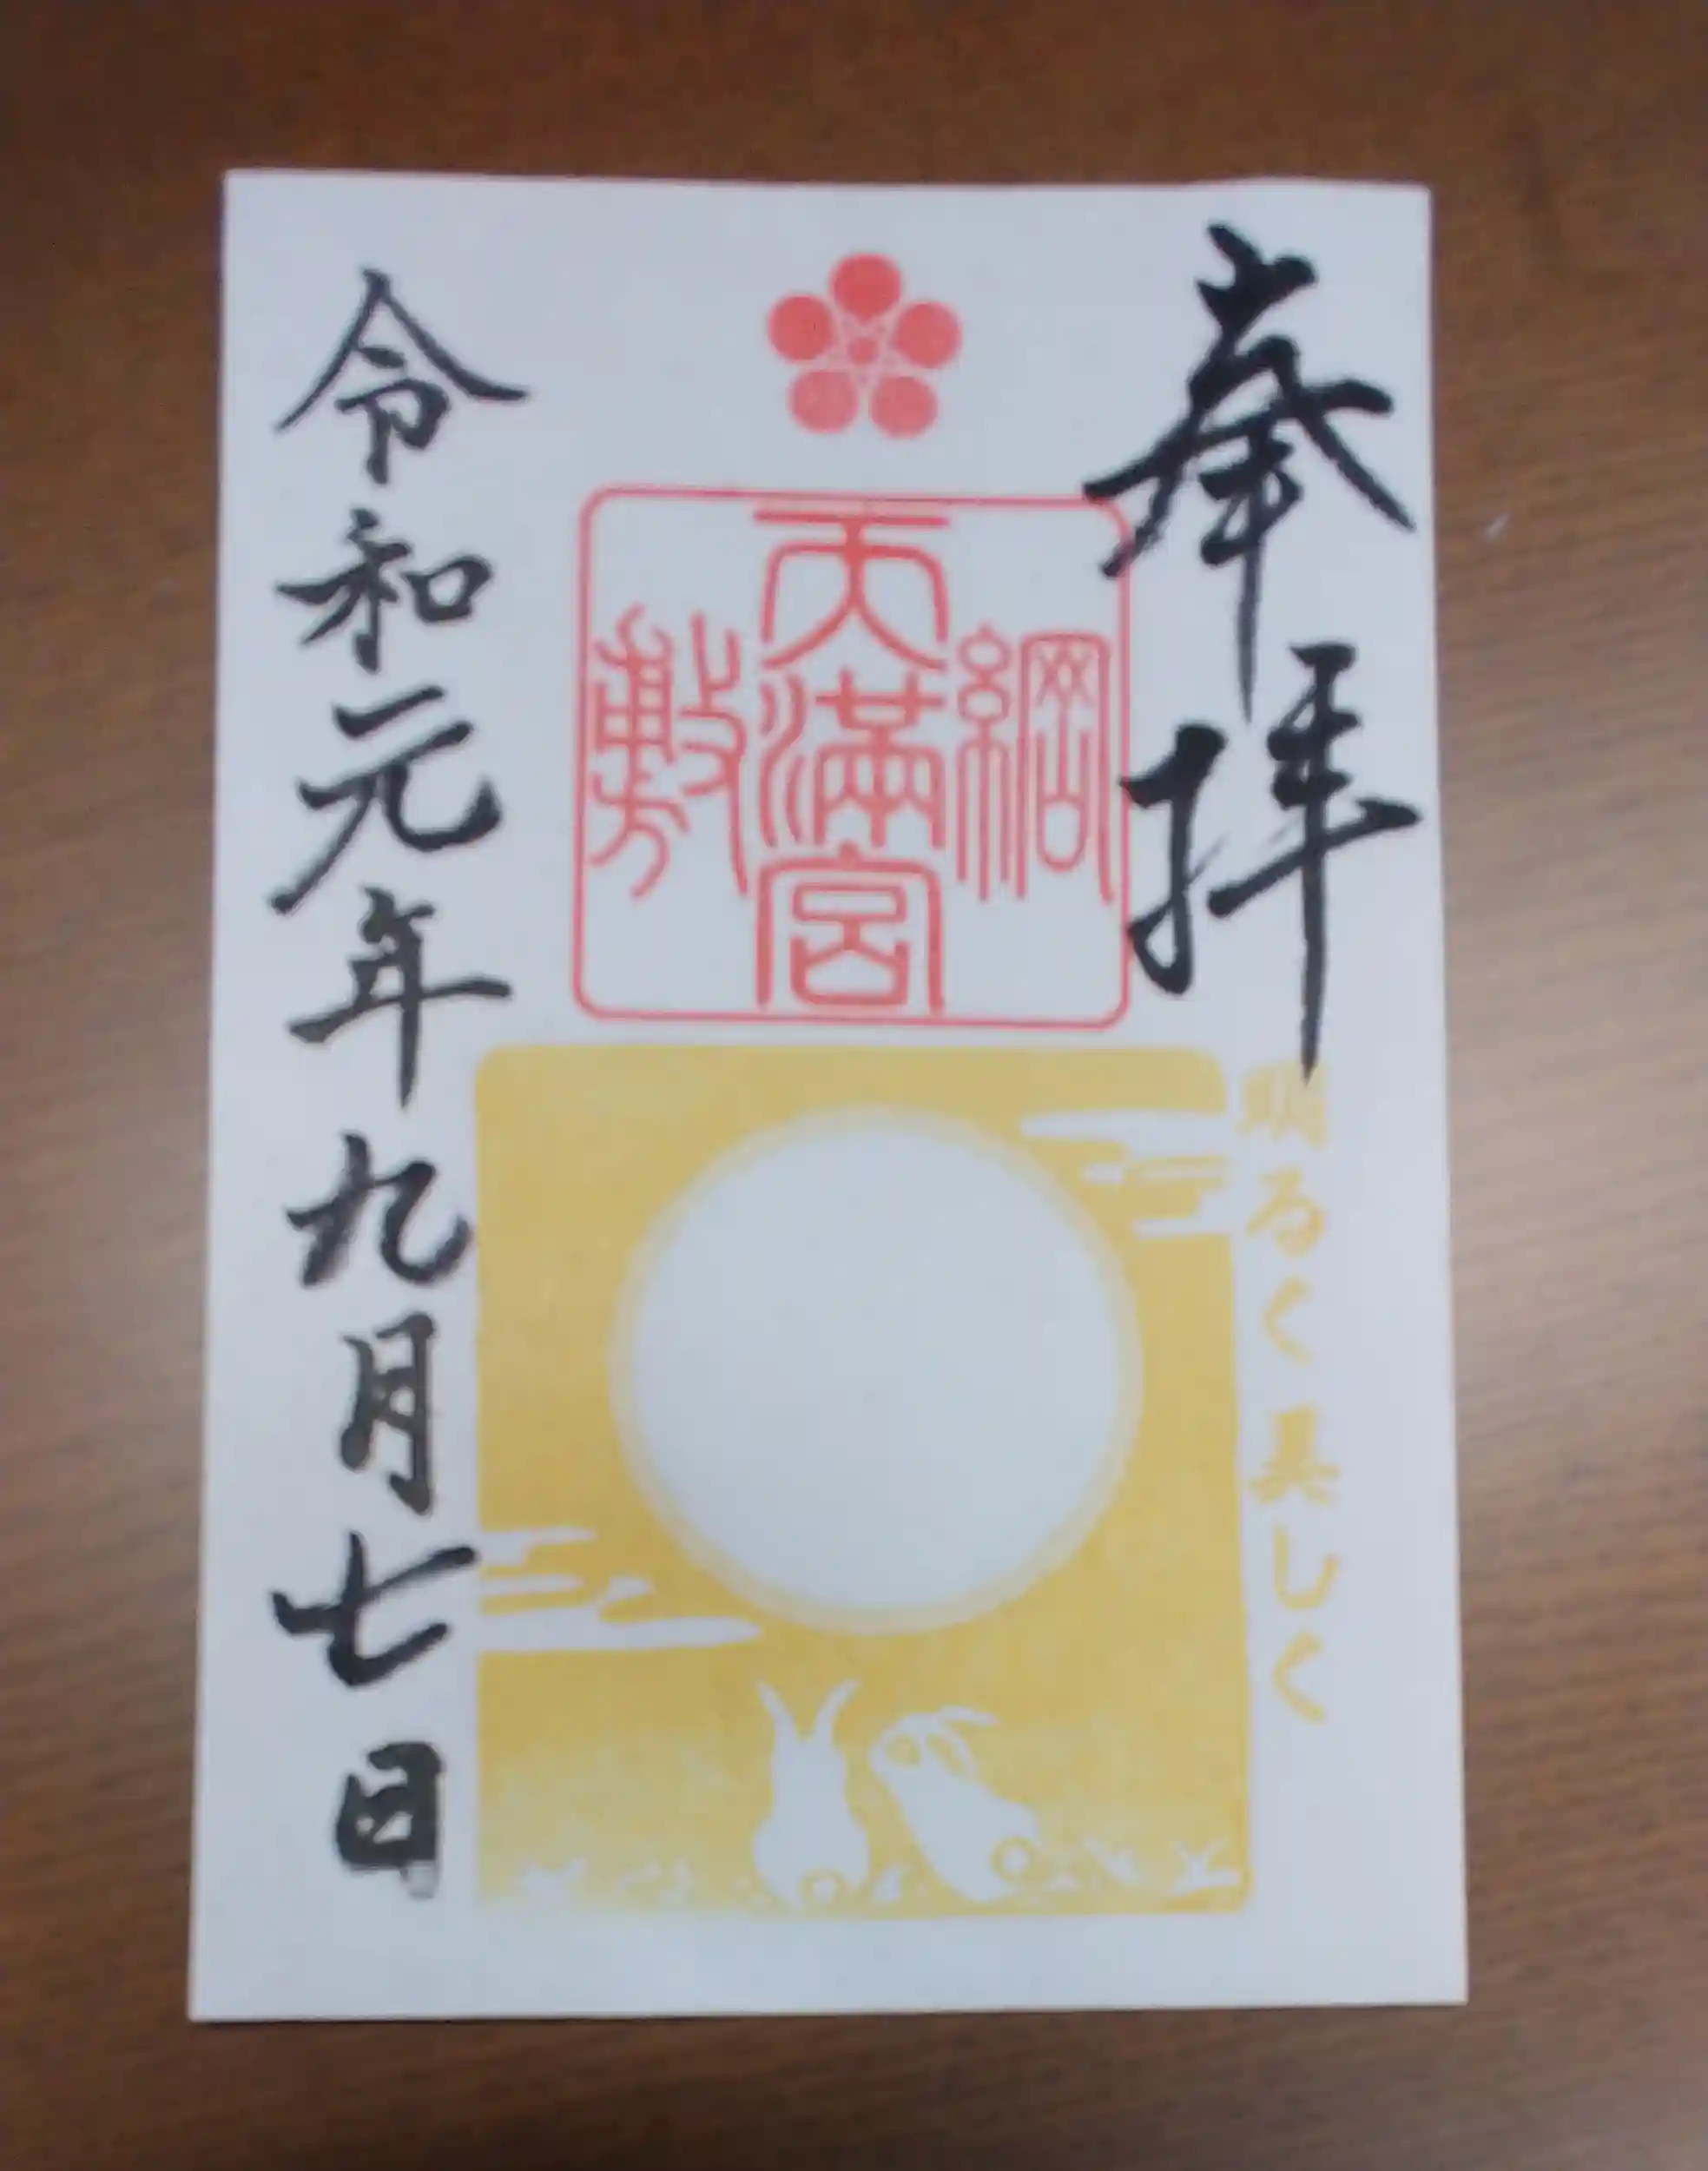 奉拝
明るく美しく
綱敷天満宮
令和元年九月七日